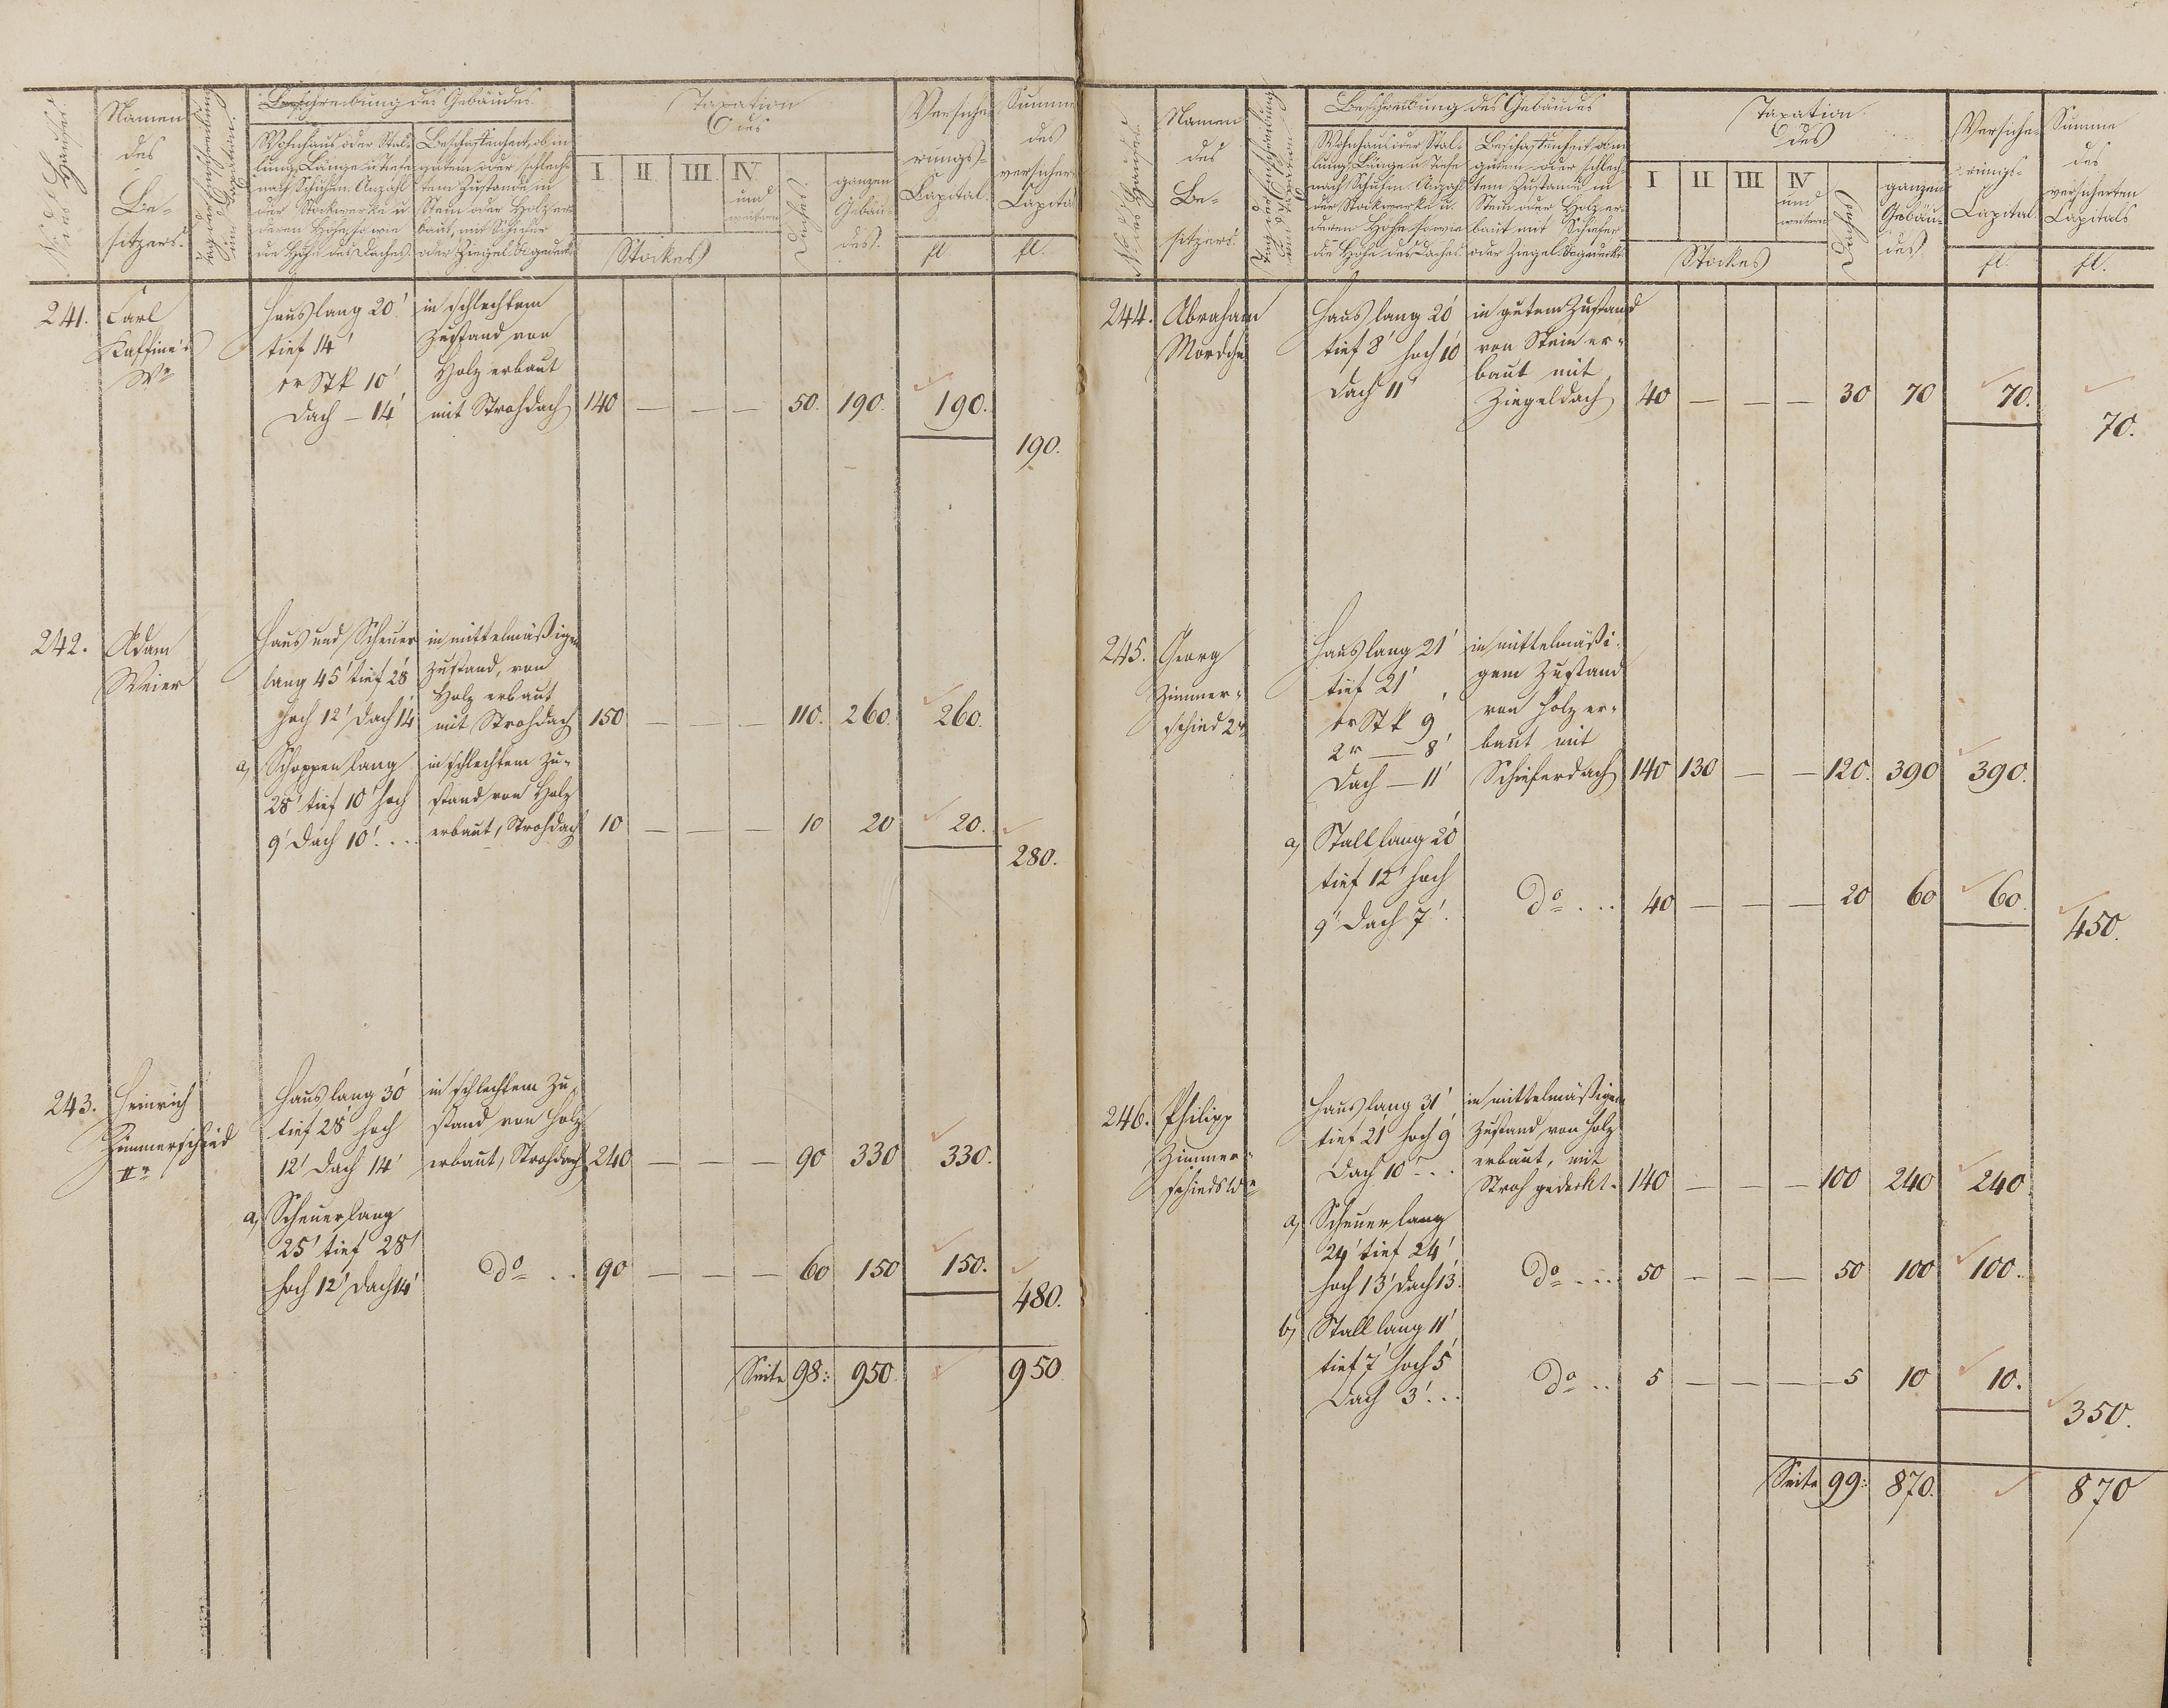 No. des Hauses.
Namen
des
Be-
sitzers.
Tag der Einschreibung
und Taxation.
Beschreibung des Gebäudes
Wohnhaus oder Stal-
lung, Länge u. Tiefe
nach Schuhen. Anzahl
der Stockwerke u.
deren Höhe, so wie
die Höhe des Daches.
Beschaffenheit, ob in
gutem oder schlech-
tem Zustande, in
Stein oder Holz er-
baut, mit Schiefer
oder Ziegel &c gedeckt.
Taxation
des
I II III IV
und
weiteren
Stockes
Daches.
ganzen
Gebäu-
des.
Versiche-
rungs-
Capital.
fl
Summe
des
versicher
Capita
fl.
241. Carl
Kaffine's
We
Haus lang 20'
tief 14'
1r Stk 10'
Dach — 14'
in schlechtem
Zustand von
Holz erbaut
mit Strohdach 140 — — — 50. 190. 190.
190.
242. Adam
Weier
Haus und Scheuer
lang 45' tief 28'
hoch 12' Dach 14'
in mittelmäßigen
Zustand, von
Holz erbaut
mit Strohdach 150 — — — 110. 260. 260.
a) Schoppen lang
28' tief 10' hoch
9' Dach 10'. . .
in schlechtem Zu-
stand von Holz
erbaut, Strohdach 10 — — — 10 20 20.
280.
243. Heinrich
Zimmerschied
IIr
Haus lang 30'
tief 28' hoch
12' Dach 14'
in schlechtem Zu-
stand von Holz
erbaut, Strohdach 240 — — — 90 330 330.
a) Scheuer lang
25' tief 28'
hoch 12' Dach 14'
do . . 90 — — — 60 150 150.
480.
Seite 98: 950. 950
No. des Hauses.
Namen
des
Be-
sitzers.
Tag der Einschreibung
und Taxation.
Beschreibung des Gebäudes
Wohnhaus oder Stal-
lung, Länge u. Tiefe
nach Schuhen. Anzahl
der Stockwerke u.
deren Höhe, sowie
die Höhe des Daches.
Beschaffenheit, ob in
gutem oder schlech-
tem Zustande, in
Stein oder Holz er-
baut mit Schiefer
oder Ziegel &c gedeckt.
Taxation
des
I II III IV
und
weiteren
Stockes
Daches
ganzen
Gebäu-
des
Versiche-
rungs-
Capital.
fl.
Summe
des
versicherten
Capitals
fl.
244. Abraham
Mordche
Haus lang 20'
tief 8' hoch 10'
Dach 11'
in gutem Zustand
von Stein er-
baut mit
Ziegeldach 40 — — — 30 70 70.
70.
245. Georg
Zimmer-
schied 2r
Haus lang 21'
tief 21'
1r Stk 9'
2r — 8'
Dach — 11'
in mittelmäßi-
gem Zustand
von Holz er-
baut mit
Schieferdach 140 130 — — 120. 390 390.
a) Stall lang 20'
tief 12' hoch
9' Dach 7'.
do . . . 40 — — — 20 60 60.
450.
246. Philipp
Zimmer-
schieds We
Haus lang 31'
tief 21' hoch 9'
Dach 10' . .
in mittelmäßigem
Zustand von Holz
erbaut, mit
Stroh gedeckt. 140 — — — 100 240 240
a) Scheuer lang
24' tief 24'
hoch 13' Dach 13'.
do . . . 50 — — — 50 100 100.
b) Stall lang 11'
tief 7' hoch 5'
Dach 3'. . .
do . . 5 — — — 5 10 10.
350.
Seite 99: 870. 870